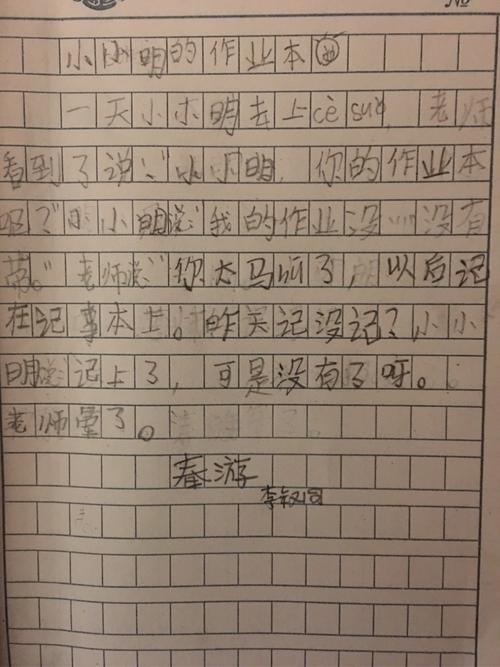 No
小小明的作业本
一天小小明去上cè suǒ,老师
看到了说:"小小明,你的作业本
呢?"小小明说"我的作业没……没有
带。"老师说"你太马叫了,以后记
在记事本上。昨天记没记?小小
明说记上了,可是没有了呀。
老师晕了。
春游